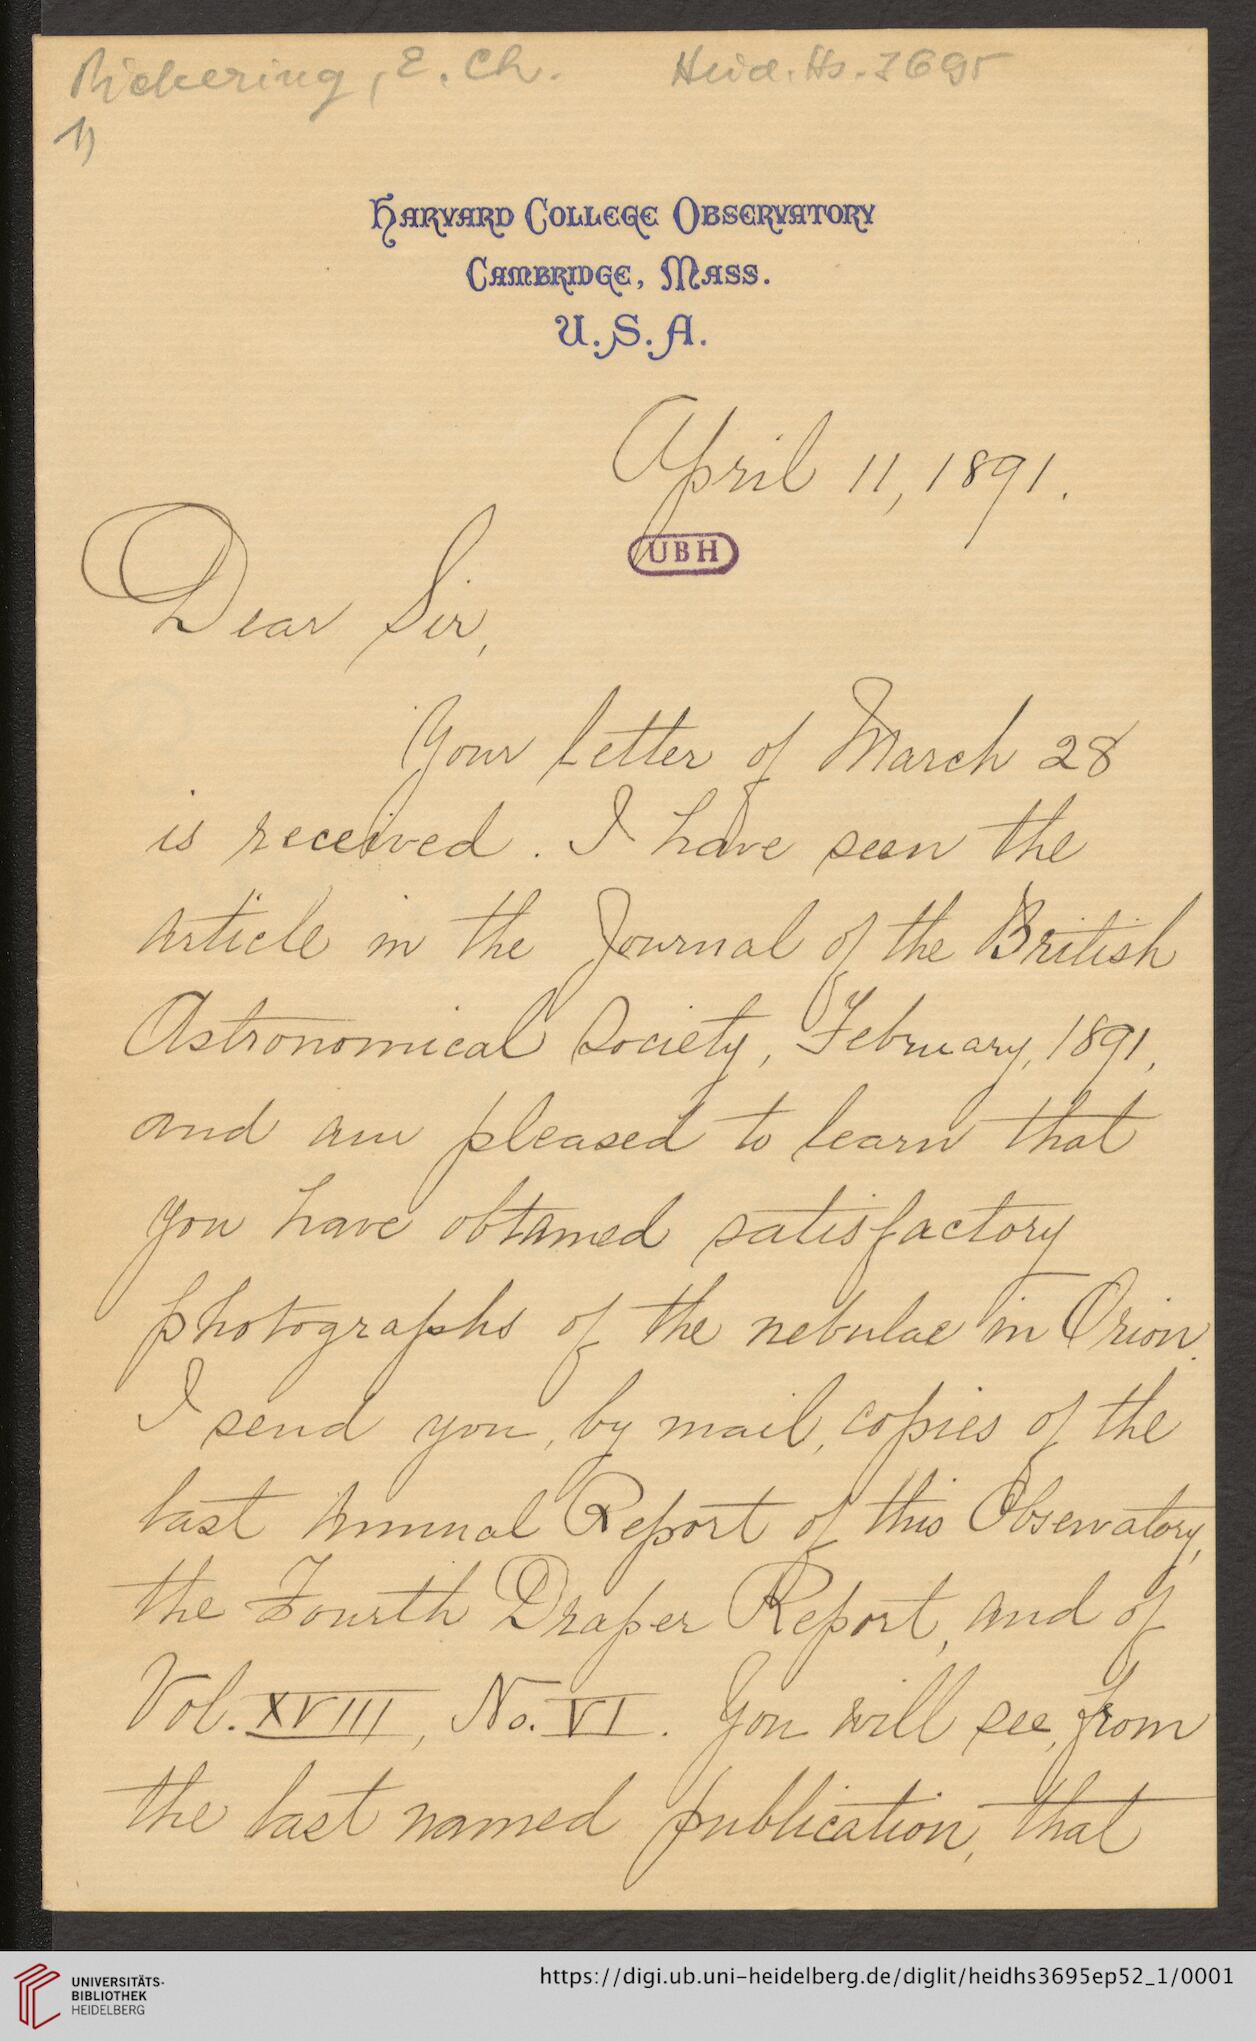 Pickering, E. Ch. Heid. Hs. 3695
1)
HARVARD COLLEGE OBSERVATORY
CAMBRIDGE, MASS.
U.S.A.
April 11, 1891.
UBH
Dear Sir,
Your letter of March 28
is received. I have seen the
article in the Journal of the British
Astronomical Society, February, 1891,
and am pleased to learn that
you have obtained satisfactory
photographs of the nebulae in Orion.
I send you, by mail, copies of the
last Annual Report of this Observatory,
the Fourth Draper Report, and of
Vol. XVIII, No. VI. You will see, from
the last named publication, that
UNIVERSITÄTS-
BIBLIOTHEK
HEIDELBERG
https://digi.ub.uni-heidelberg.de/diglit/heidhs3695ep52_1/0001